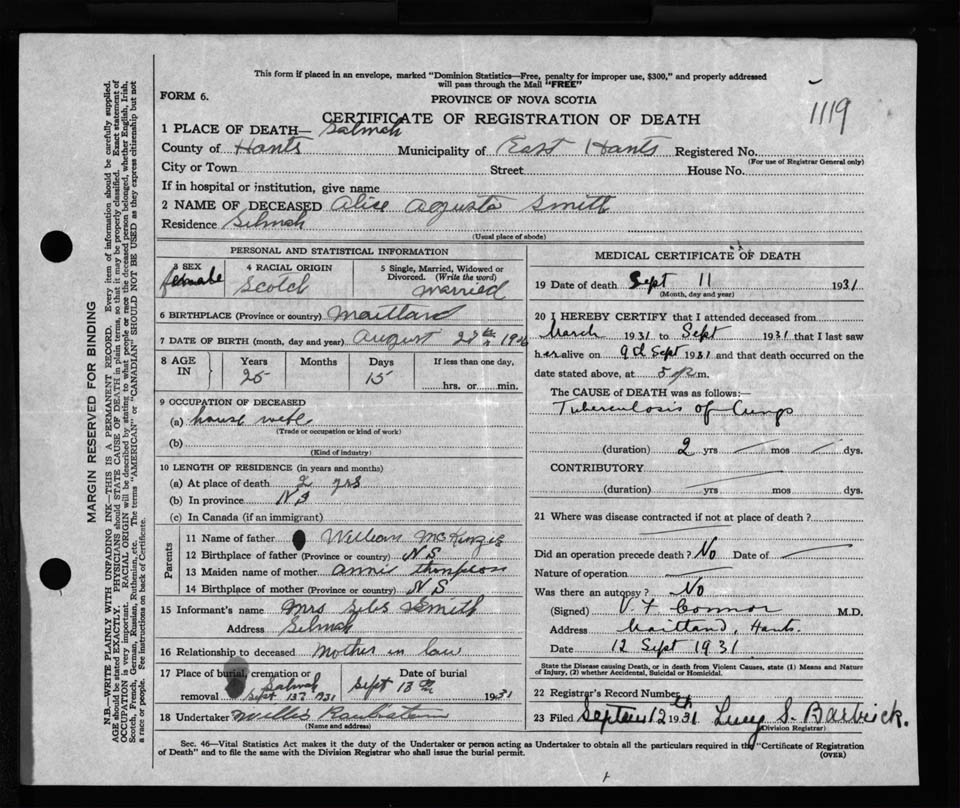 This form if placed in an envelope, marked "Dominion Statistics—Free, penalty for improper use, $300," and properly addressed
will pass through the Mail "FREE"
FORM 6.
PROVINCE OF NOVA SCOTIA
1119
CERTIFICATE OF REGISTRATION OF DEATH
1 PLACE OF DEATH— Selmah
County of Hants Municipality of East Hants Registered No.
(For use of Registrar General only)
City or Town Street House No.
If in hospital or institution, give name
2 NAME OF DECEASED Alice Agusta Smith
Residence Selmah
(Usual place of abode)
PERSONAL AND STATISTICAL INFORMATION
3 SEX 4 RACIAL ORIGIN 5 Single, Married, Widowed or
Divorced. (Write the word)
female Scotch married
6 BIRTHPLACE (Province or country) Maitland
7 DATE OF BIRTH (month, day and year) August 28th 1906
8 AGE IN Years Months Days If less than one day,
25 15 hrs. or min.
9 OCCUPATION OF DECEASED
(a) house wife
(Trade or occupation or kind of work)
(b)
(Kind of industry)
10 LENGTH OF RESIDENCE (in years and months)
(a) At place of death 2 yrs
(b) In province NS
(c) In Canada (if an immigrant)
Parents
11 Name of father William McKinzie
12 Birthplace of father (Province or country) NS
13 Maiden name of mother annie thompson
14 Birthplace of mother (Province or country) NS
15 Informant's name Mrs Giles Smith
Address Selmah
16 Relationship to deceased Mother in law
17 Place of burial, cremation or removal Date of burial
Selmah Sept 13th 1931
Sept 13th 1931
18 Undertaker Willis
(Name and address)
MEDICAL CERTIFICATE OF DEATH
19 Date of death Sept 11 1931
(Month, day and year)
20 I HEREBY CERTIFY that I attended deceased from
March 1931 to Sept 1931 that I last saw
her alive on 9th Sept 1931 and that death occurred on the
date stated above, at 5 p.m.
The CAUSE OF DEATH was as follows:—
Tuberculosis of Lungs
(duration) 2 yrs mos dys.
CONTRIBUTORY
(duration) yrs mos dys.
21 Where was disease contracted if not at place of death?
Did an operation precede death? No Date of
Nature of operation
Was there an autopsy? No
(Signed) V F Connor M.D.
Address Maitland, Hants.
Date 12 Sept 1931
State the Disease causing Death, or in death from Violent Causes, state (1) Means and Nature
of Injury, (2) whether Accidental, Suicidal or Homicidal.
22 Registrar's Record Number
23 Filed Septem 12th 1931. Lucy S. Barbrick.
(Division Registrar)
Sec. 46—Vital Statistics Act makes it the duty of the Undertaker or person acting as Undertaker to obtain all the particulars required in the "Certificate of Registration
of Death" and to file the same with the Division Registrar who shall issue the burial permit.
(OVER)
MARGIN RESERVED FOR BINDING
N.B.—WRITE PLAINLY WITH UNFADING INK—THIS IS A PERMANENT RECORD. Every item of information should be carefully supplied.
AGE should be stated EXACTLY. PHYSICIANS should STATE CAUSE OF DEATH in plain terms, so that it may be properly classified. Exact statement of
OCCUPATION is very important. RACIAL ORIGIN will be described by stating to what people or race the deceased person belonged, whether English, Irish,
Scotch, French, German, Russian, Ruthenian, etc. The terms "AMERICAN" or "CANADIAN SHOULD NOT BE USED as they express citizenship but not
a race or people. See instructions on back of Certificate.